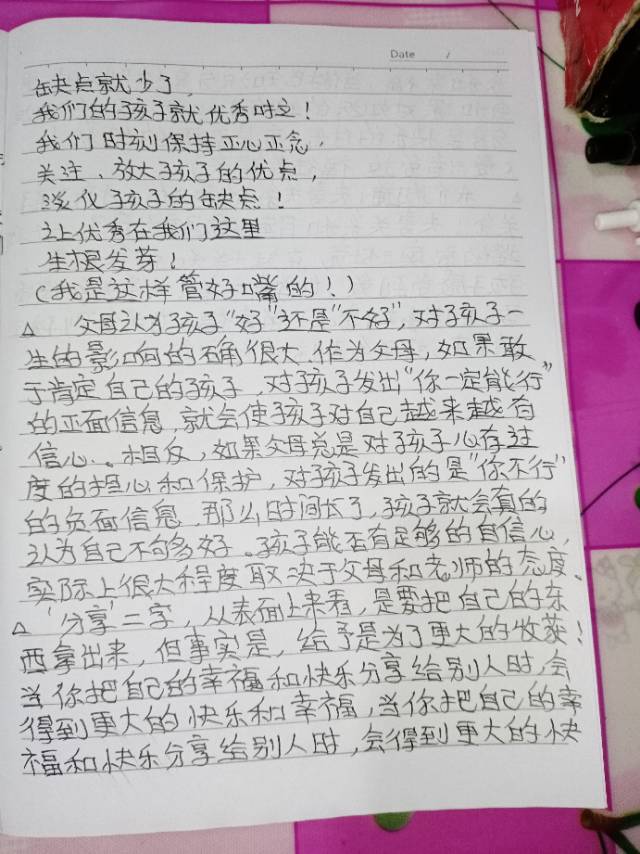 Date /
缺点就少了,
我们的孩子就优秀时之!
我们时刻保持正心正念,
关注、放大孩子的优点,
淡化孩子的缺点!
让优秀在我们这里
生根发芽!
(我是这样管好嘴的!)
△ 父母认为孩子“好”还是“不好”,对孩子一
生的影响的确很大.作为父母,如果敢
于肯定自己的孩子,对孩子发出“你一定能行”
的正面信息,就会使孩子对自己越来越有
信心.。相反,如果父母总是对孩子心存过
度的担心和保护,对孩子发出的是“你不行”
的负面信息,那么时间长了,孩子就会真的
认为自己不够多好。孩子能否有足够的自信心,
实际上很大程度取决于父母和老师的态度.
△ ‘分享’二字,从表面上来看,是要把自己的东
西拿出来,但事实是,给予是为了更大的收获!
当你把自己的幸福和快乐分享给别人时,会
得到更大的快乐和幸福,当你把自己的幸
福和快乐分享给别人时,会得到更大的快